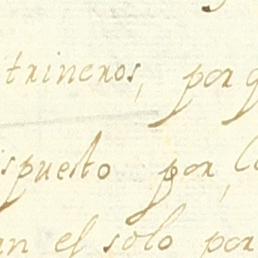 trineros, por
ispuesto por, C
an el solo por